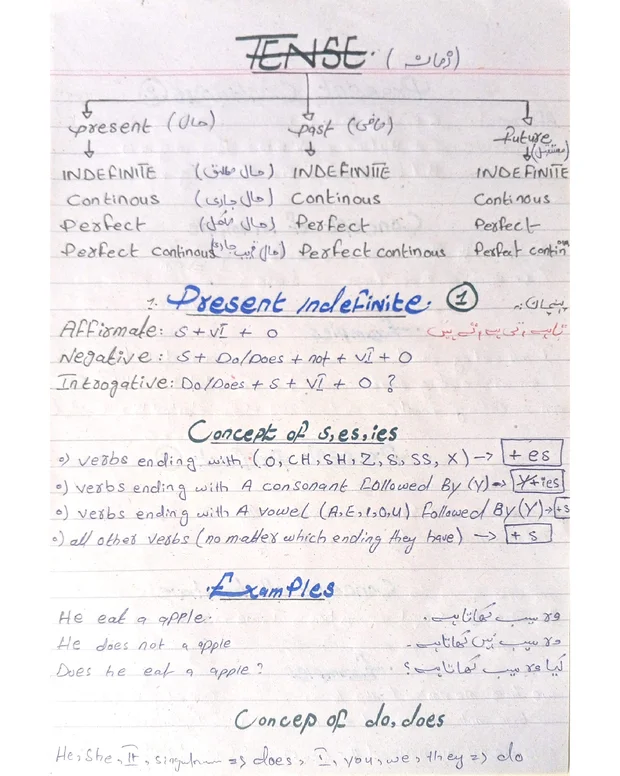 TENSE. (زمانہ)
present (حال) past (ماضی) Future (مستقبل)
INDEFINITE (حال مطلق) INDEFINITE INDEFINITE
Continous (حال جاری) Continous Continous
Perfect (حال مکمل) Perfect Perfect
Perfect continous Perfect continous Perfect continous
1. Present indefinite. ① پہچان:
Affirmate: S + VI + O تا ہے، تی ہے، تے ہیں
Negative: S + Do/Does + not + VI + O
Introgative: Do/Does + S + VI + O ?
Concept of s, es, ies
verbs ending with (O, CH, SH, Z, S, SS, X) → + es
verbs ending with A consonant followed By (Y) → Y+ies
verbs ending with A vowel (A, E, I, O, U) followed By (Y) → + s
all other verbs (no matter which ending they have) → + s
Examples
He eat a apple. وہ سیب کھاتا ہے۔
He does not a apple وہ سیب نہیں کھاتا ہے۔
Does he eat a apple? کیا وہ سیب کھاتا ہے؟
Concep of do, does
He, She, It, singular => does, I, you, we, they => do